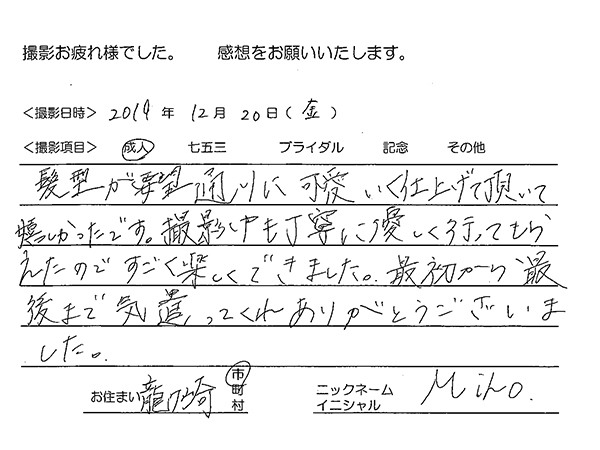 撮影お疲れ様でした。 感想をお願いいたします。
<撮影日時> 2019年 12月 20日(金)
<撮影項目> 成人 七五三 ブライダル 記念 その他
髪型が要望通りに可愛いく仕上げて頂いて
嬉しかったです。撮影中も丁寧に優しく行ってもら
えたのですごく楽しくできました。最初から最
後まで気遣ってくれありがとうございま
した。
お住まい 龍ケ崎 市町村 ニックネーム イニシャル Miho.